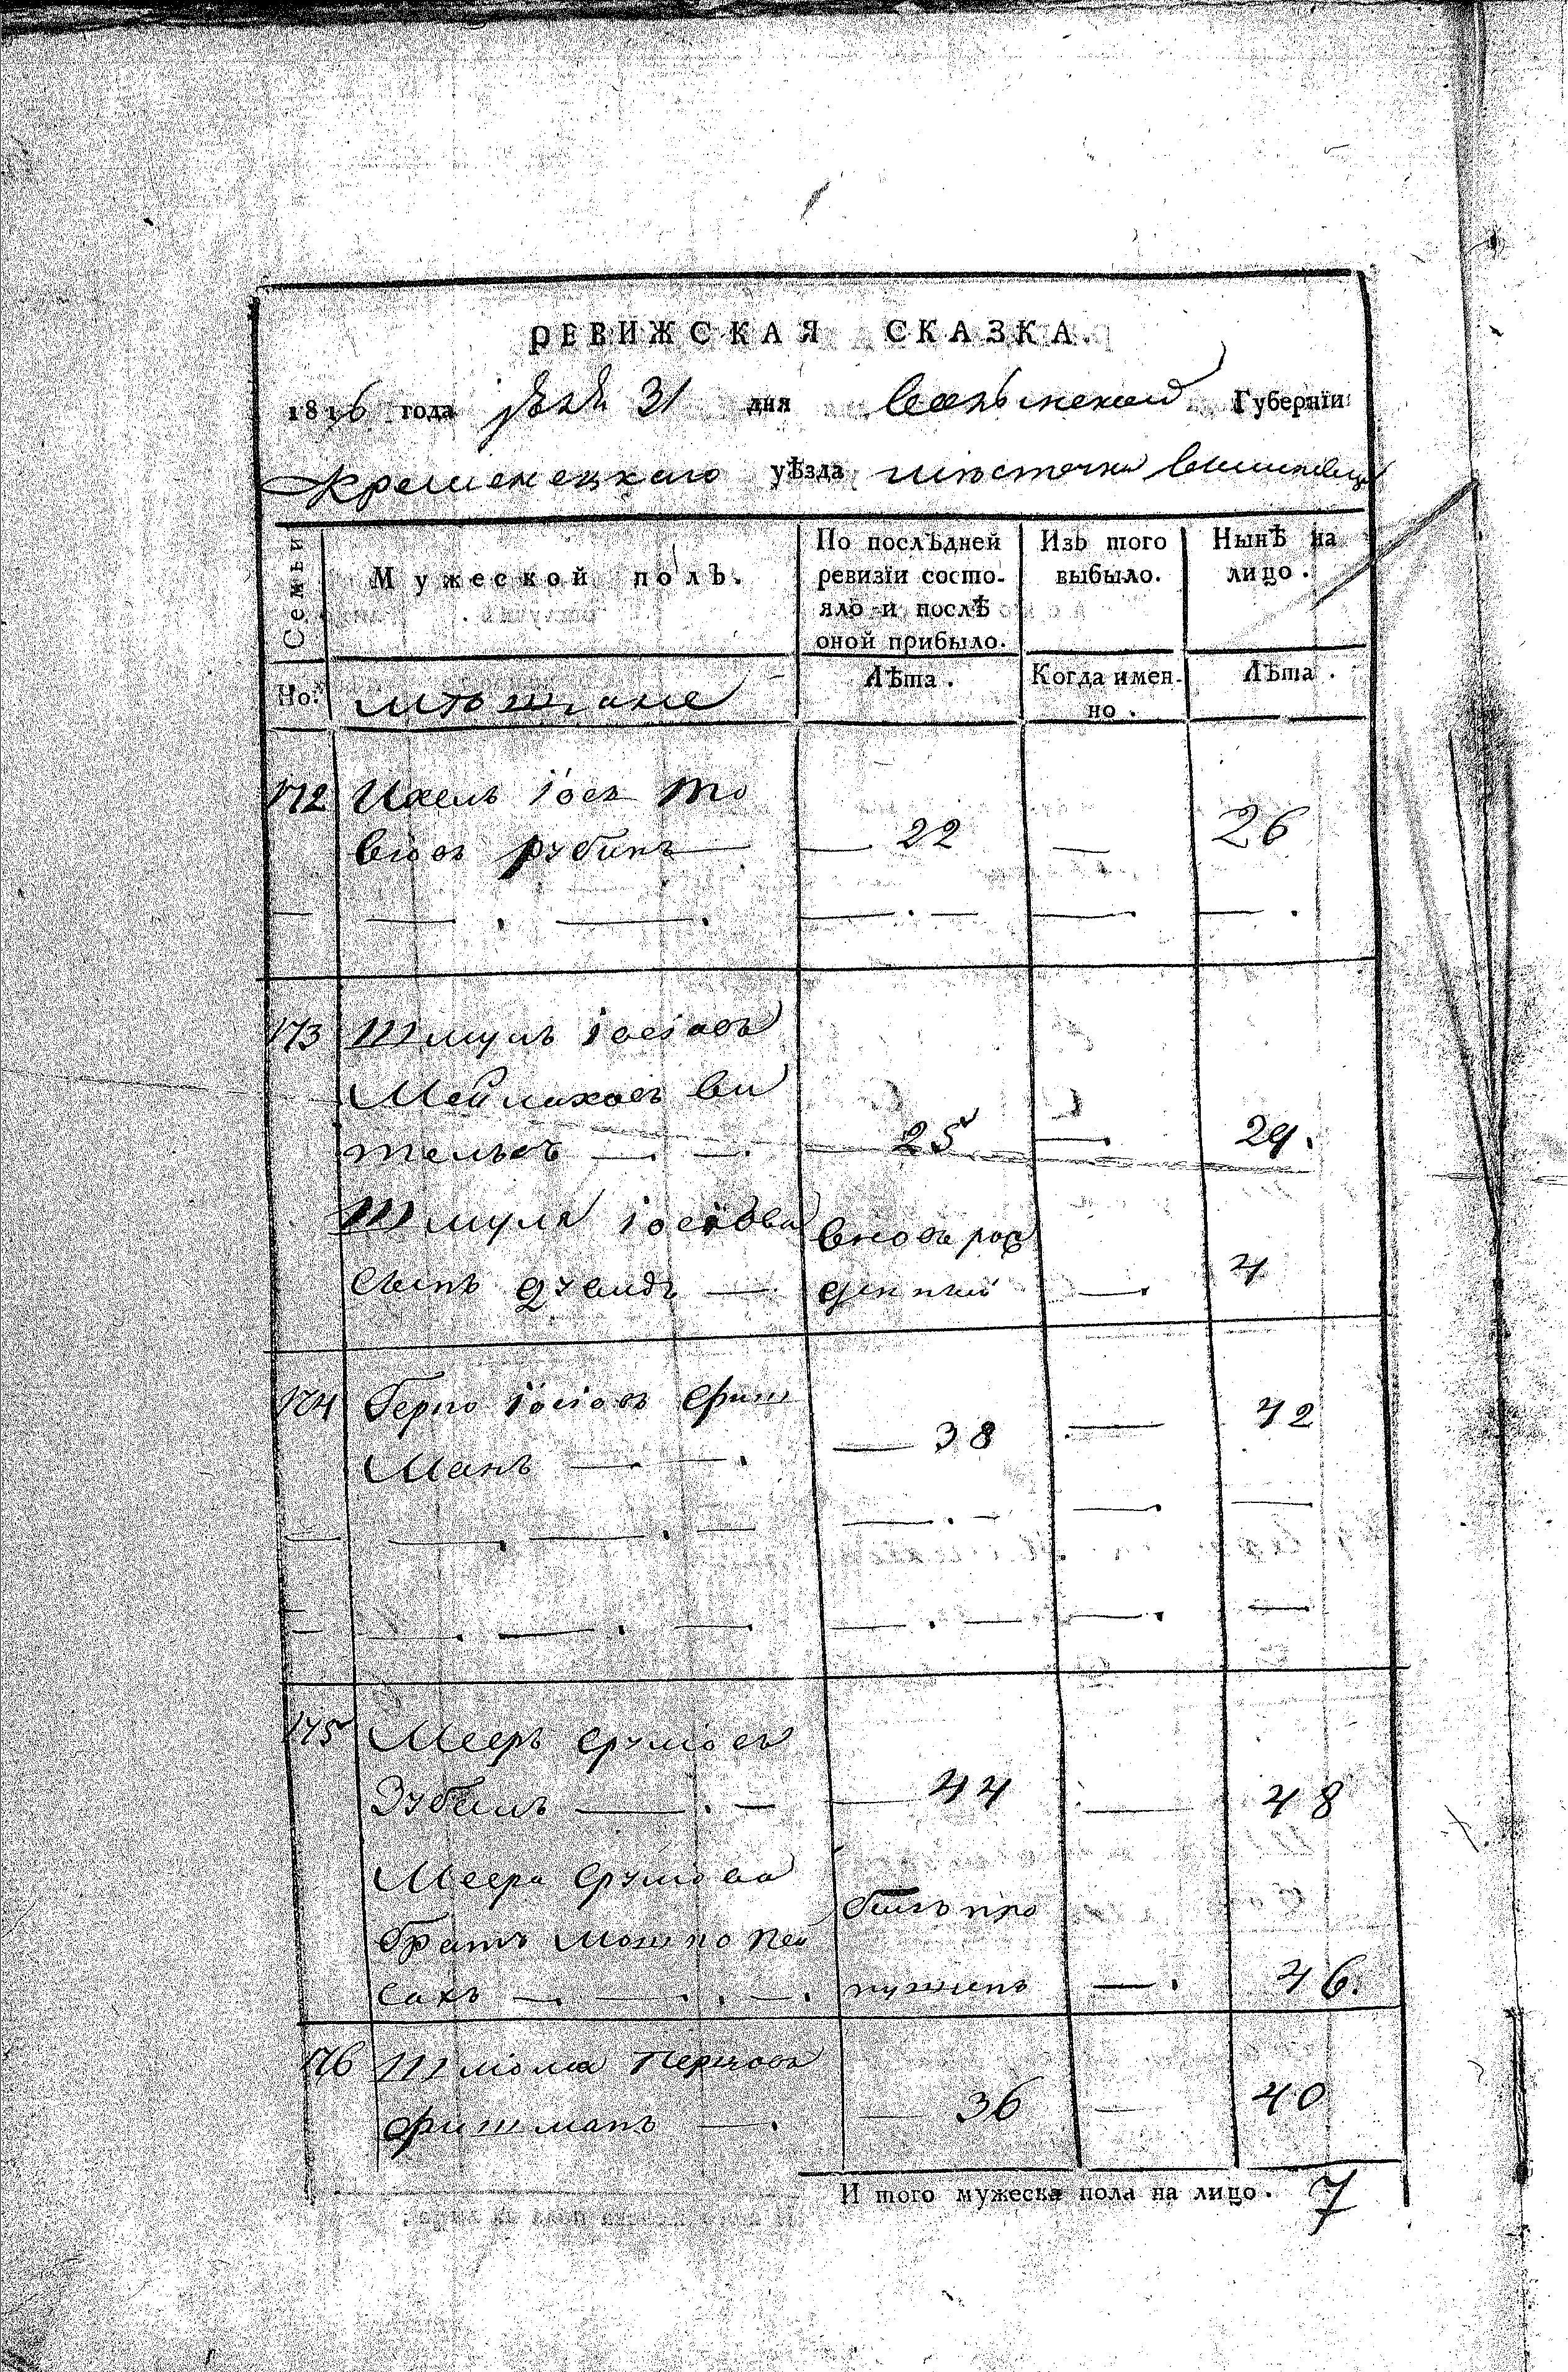 РЕВИЖСКАЯ СКАЗКА.
1816 года 31 дня Волынской Губерніи
Кременецкаго уѣзда мѣстечка Вишневца
Семьи
Мужеской полъ.
По послѣдней ревизіи состояло и послѣ оной прибыло.
Изъ того выбыло.
Нынѣ на лицо.
Но.
мѣщане
Лѣта.
Когда именно.
Лѣта.
172 Ихель Іось
Рубинъ — 22 — 26
173 Шмуль Іосіовъ
Мейлаховъ Ви
тельсъ — 25 — 29.
Шмуля Іосіова вновь рож
сынъ денный — 4
174 Гершо Іосіовъ Фиш
манъ — 38 — 42
175 Мееръ Срулiовъ
— 44 — 48
Меера Срулiова
братъ Мошко Пей былъ про
сахъ — пущенъ — 46.
176 Шліома
Фишманъ — 36 — 40
И того мужеска пола на лицо. 7